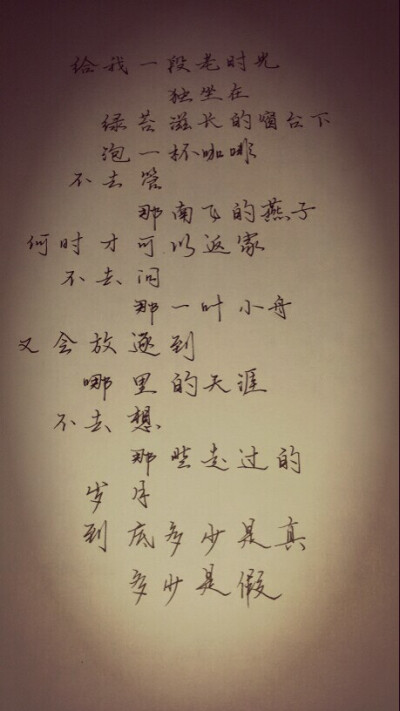 给我一段老时光
独坐在
绿苔滋长的窗台下
泡一杯咖啡
不去管
那南飞的燕子
何时才可以返家
不去问
那一叶小舟
又会放逐到
哪里的天涯
不去想
那些走过的
岁月
到底多少是真
多少是假